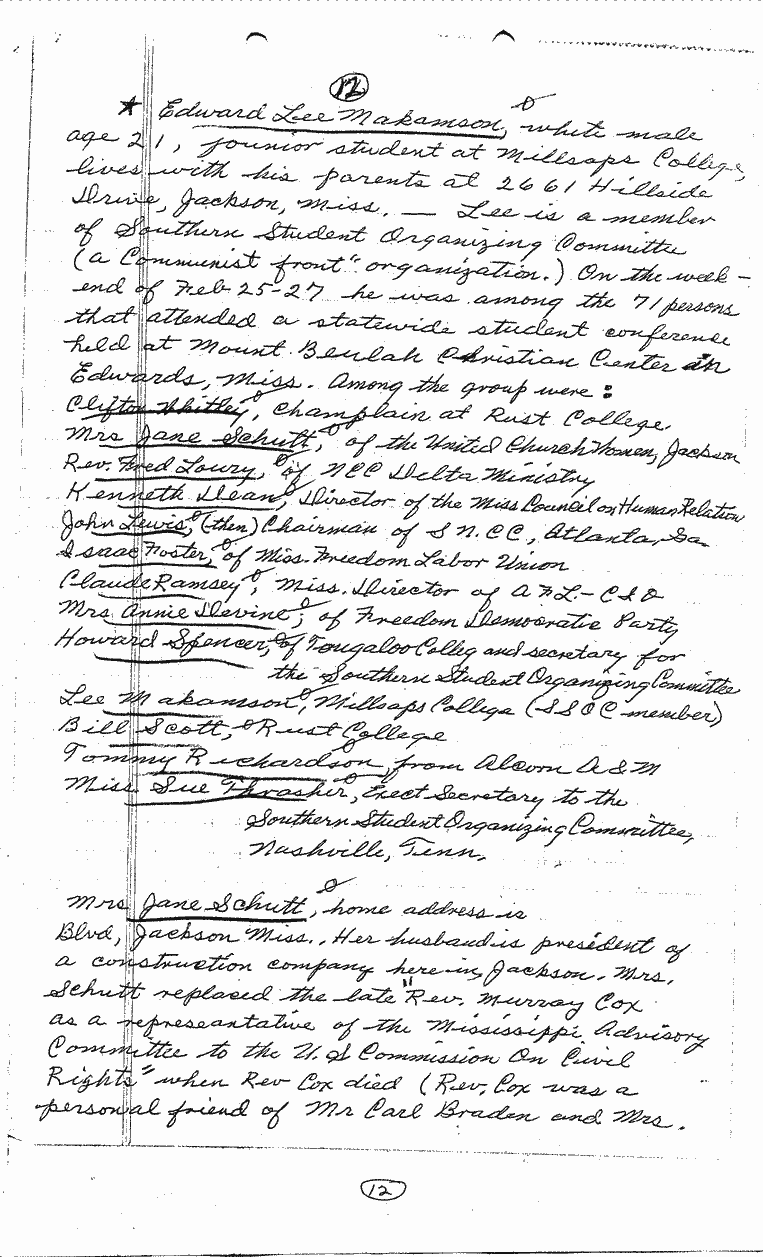 12
★ Edward Lee Makamson, white male
age 21, jounior student at Millsaps College,
lives with his parents at 2661 Hillside
Drive, Jackson, Miss. — Lee is a member
of Southern Student Organizing Committee
(a Communist front" organization.) On the week-
end of Feb 25-27 he was among the 71 persons
that attended a statewide student conference
held at Mount Beulah Christian Center in
Edwards, Miss. Among the group were:
Clifton Whitley, Champlain at Rust College.
Mrs Jane Schutt, of the United Church Women, Jackson
Rev. Fred Lowry, of NCC Delta Ministry
Kenneth Dean, Director of the Miss Council on Human Relation
John Lewis, (then) Chairman of SNCC, Atlanta, Ga
Isaac Foster, of Miss. Freedom Labor Union
Claude Ramsey, Miss. Director of AFL-CIO
Mrs Annie Devine, of Freedom Democratic Party
Howard Spencer, of Tougaloo Colleg and secretary for
the Southern Student Organizing Committee
Lee Makamson, Millsaps College (SSOC member)
Bill Scott, Rust College
Tommy Richardson, from Alcorn A&M
Miss Sue Thrasher, Exect Secretary to the
Southern Student Organizing Committee,
Nashville, Tenn.
Mrs Jane Schutt, home address is
Blvd, Jackson Miss., Her husband is president of
a construction company here in Jackson. Mrs.
Schutt replaced the late "Rev. Murray Cox
as a represeantative of the Mississippi Advisory
Committee to the U.S Commission On Civil
Rights" when Rev Cox died (Rev. Cox was a
personal friend of Mr Carl Braden and Mrs.
12